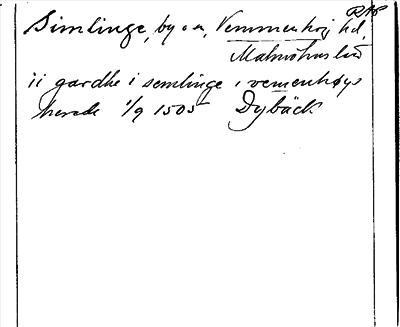 RAP
Simlinge, by o sn, Vemmenhög hd,
Malmöhus län
ii gardhe i semlinge i vemenhøys
herede 1/9 1505 Dybäck